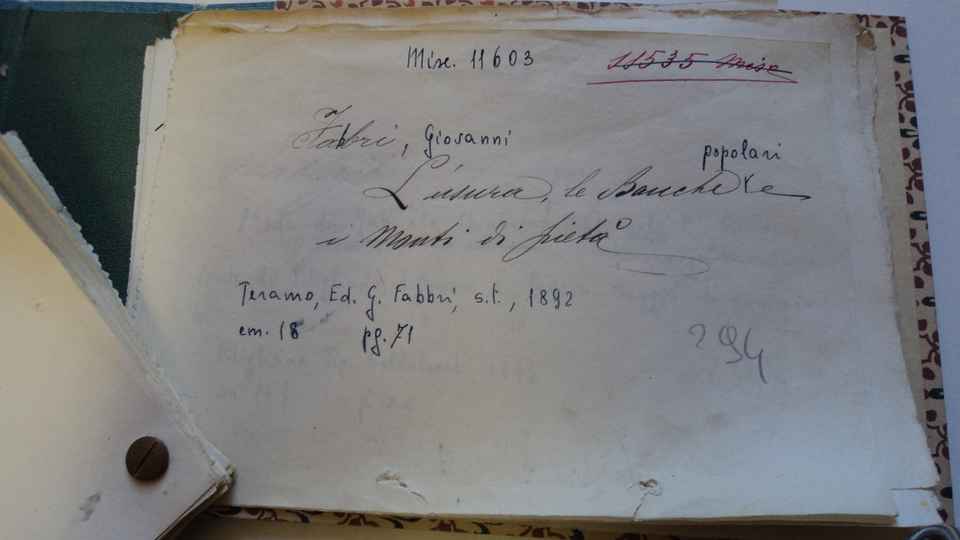 Misc. 11603
11535 Misc
Fabbri, Giovanni
popolari
L'usura, le Banche e
i Monti di pietà
Teramo, Ed. G. Fabbri, s.t., 1892
cm. 18 pg. 71
294